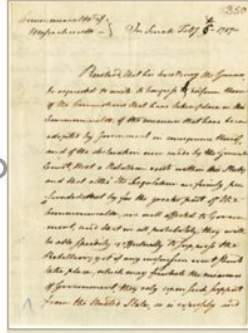 350
Commonwealth of
Massachusetts } In Senate Feby 6th 1787
Resolved, that his Excellency the Governor
be requested to write to Congress & inform them
of the Commotions that have taken place in the
Commonwealth, of the measures that have been
adopted by Government in consequence thereof,
and of the declaration now made by the General
Court, that a Rebellion exist within this State,
and that altho' the Legislature are firmly per
suaded, that by far the greater part of the
Commonwealth, are well affected to Govern
ment, and that in all probability, they will
be able speedily & effectually to suppress the
Rebellion, yet if any event should
take place, which may the measures
of Government, they rely upon such support
from the United States, as is expressly and